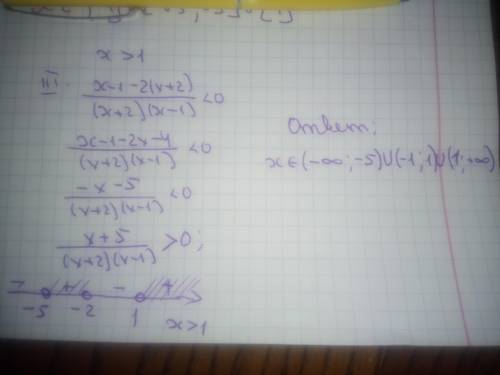 x > 1
III. (x-1-2(x+2))/((x+2)(x-1)) < 0
(x-1-2x-4)/((x+2)(x-1)) < 0
(-x-5)/((x+2)(x-1)) < 0
(x+5)/((x+2)(x-1)) > 0;
- + - +
-5 -2 1 x>1
Ответ:
x∈(-∞;-5)∪(-1;1)∪(1;+∞)